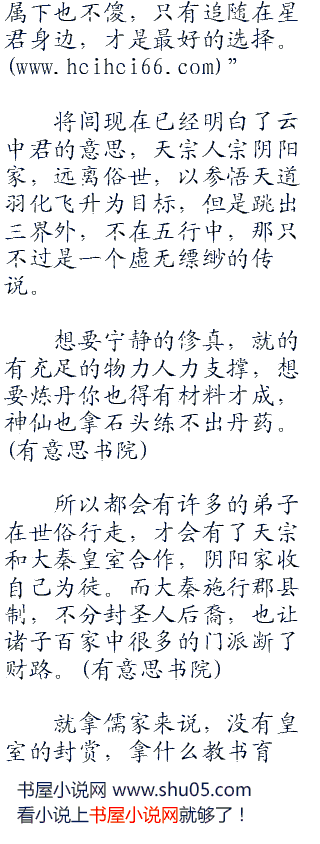 属下也不傻，只有追随在星
君身边，才是最好的选择。
(www.hcihci66.com)”
将闾现在已经明白了云
中君的意思，天宗人宗阴阳
家，远离俗世，以参悟天道
羽化飞升为目标，但是跳出
三界外，不在五行中，那只
不过是一个虚无缥缈的传
说。
想要宁静的修真，就的
有充足的物力人力支撑，想
要炼丹你也得有材料才成，
神仙也拿石头练不出丹药。
(有意思书院)
所以都会有许多的弟子
在世俗行走，才会有了天宗
和大秦皇室合作，阴阳家收
自己为徒。而大秦施行郡县
制，不分封圣人后裔，也让
诸子百家中很多的门派断了
财路。(有意思书院)
就拿儒家来说，没有皇
室的封赏，拿什么教书育
书屋小说网 www.shu05.com
看小说上书屋小说网就够了！